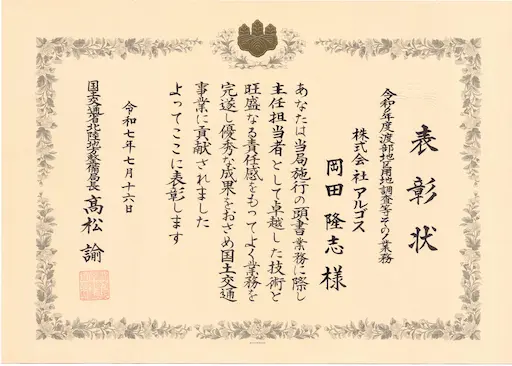 表彰状
令和6年度渡部地区用地調査等その1業務
株式会社アルゴス
岡田隆志様
あなたは当局施行の頭書業務に際し
主任担当者として卓越した技術と
旺盛なる責任感をもってよく業務を
完遂し優秀な成果をおさめ国土交通
事業に貢献されました
よってここに表彰します
令和七年七月十六日
国土交通省北陸地方整備局長 髙松諭